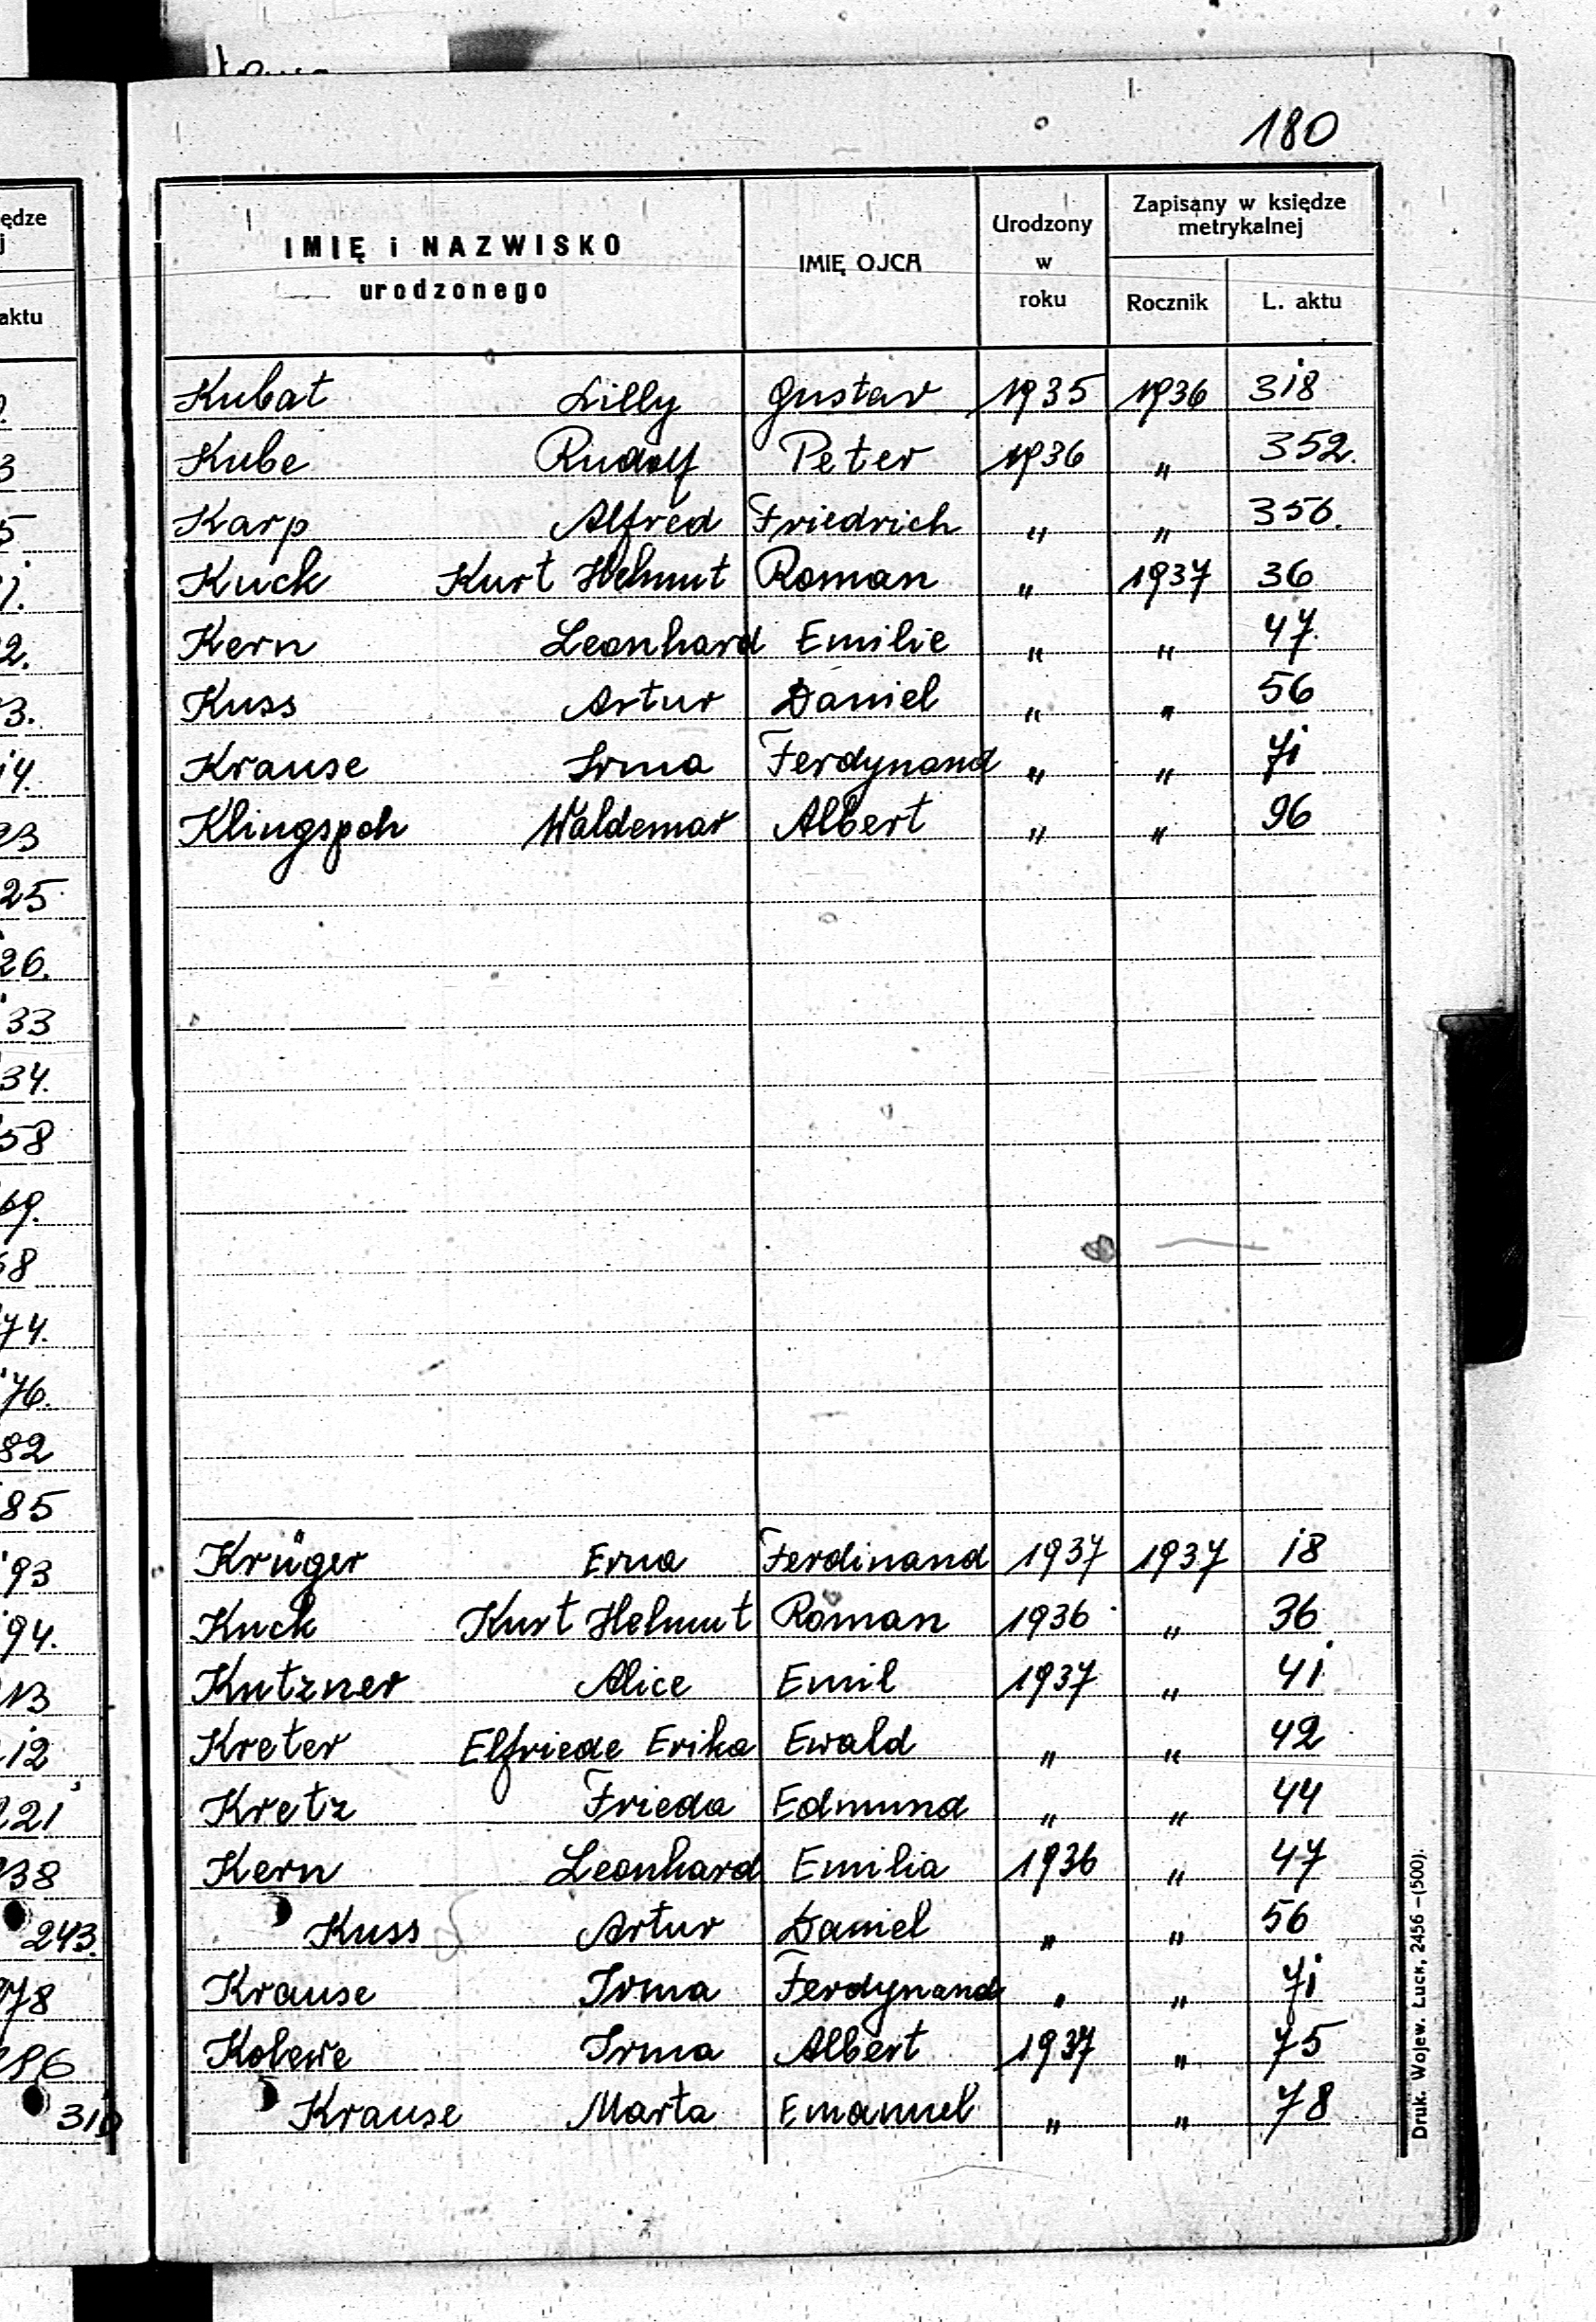 180
IMIĘ i NAZWISKO urodzonego IMIĘ OJCA Urodzony w roku Zapisany w księdze metrykalnej Rocznik L. aktu
Kubat Lilly Gustav 1935 1936 318
Kube Rudolf Peter 1936 " 352.
Karp Alfred Friedrich " " 356.
Kuck Kurt Helmut Roman " 1937 36
Kern Leonhard Emilie " " 47.
Kuss Artur Daniel " " 56
Krause Irma Ferdynand " " 71
Klingspoh Waldemar Albert " " 96
Krüger Erna Ferdinand 1937 1937 18
Kuck Kurt Helmut Roman 1936 " 36
Kutzner Alice Emil 1937 " 41
Kreter Elfriede Erika Ewald " " 42
Kretz Frieda Edmund " " 44
Kern Leonhard Emilia 1936 " 47
Kuss Artur Daniel " " 56
Krause Irma Ferdynand " " 71
Kolewe Irma Albert 1937 " 75
Krause Marta Emanuel " " 78
Druk. Wojew. Łuck, 2456 —(500).